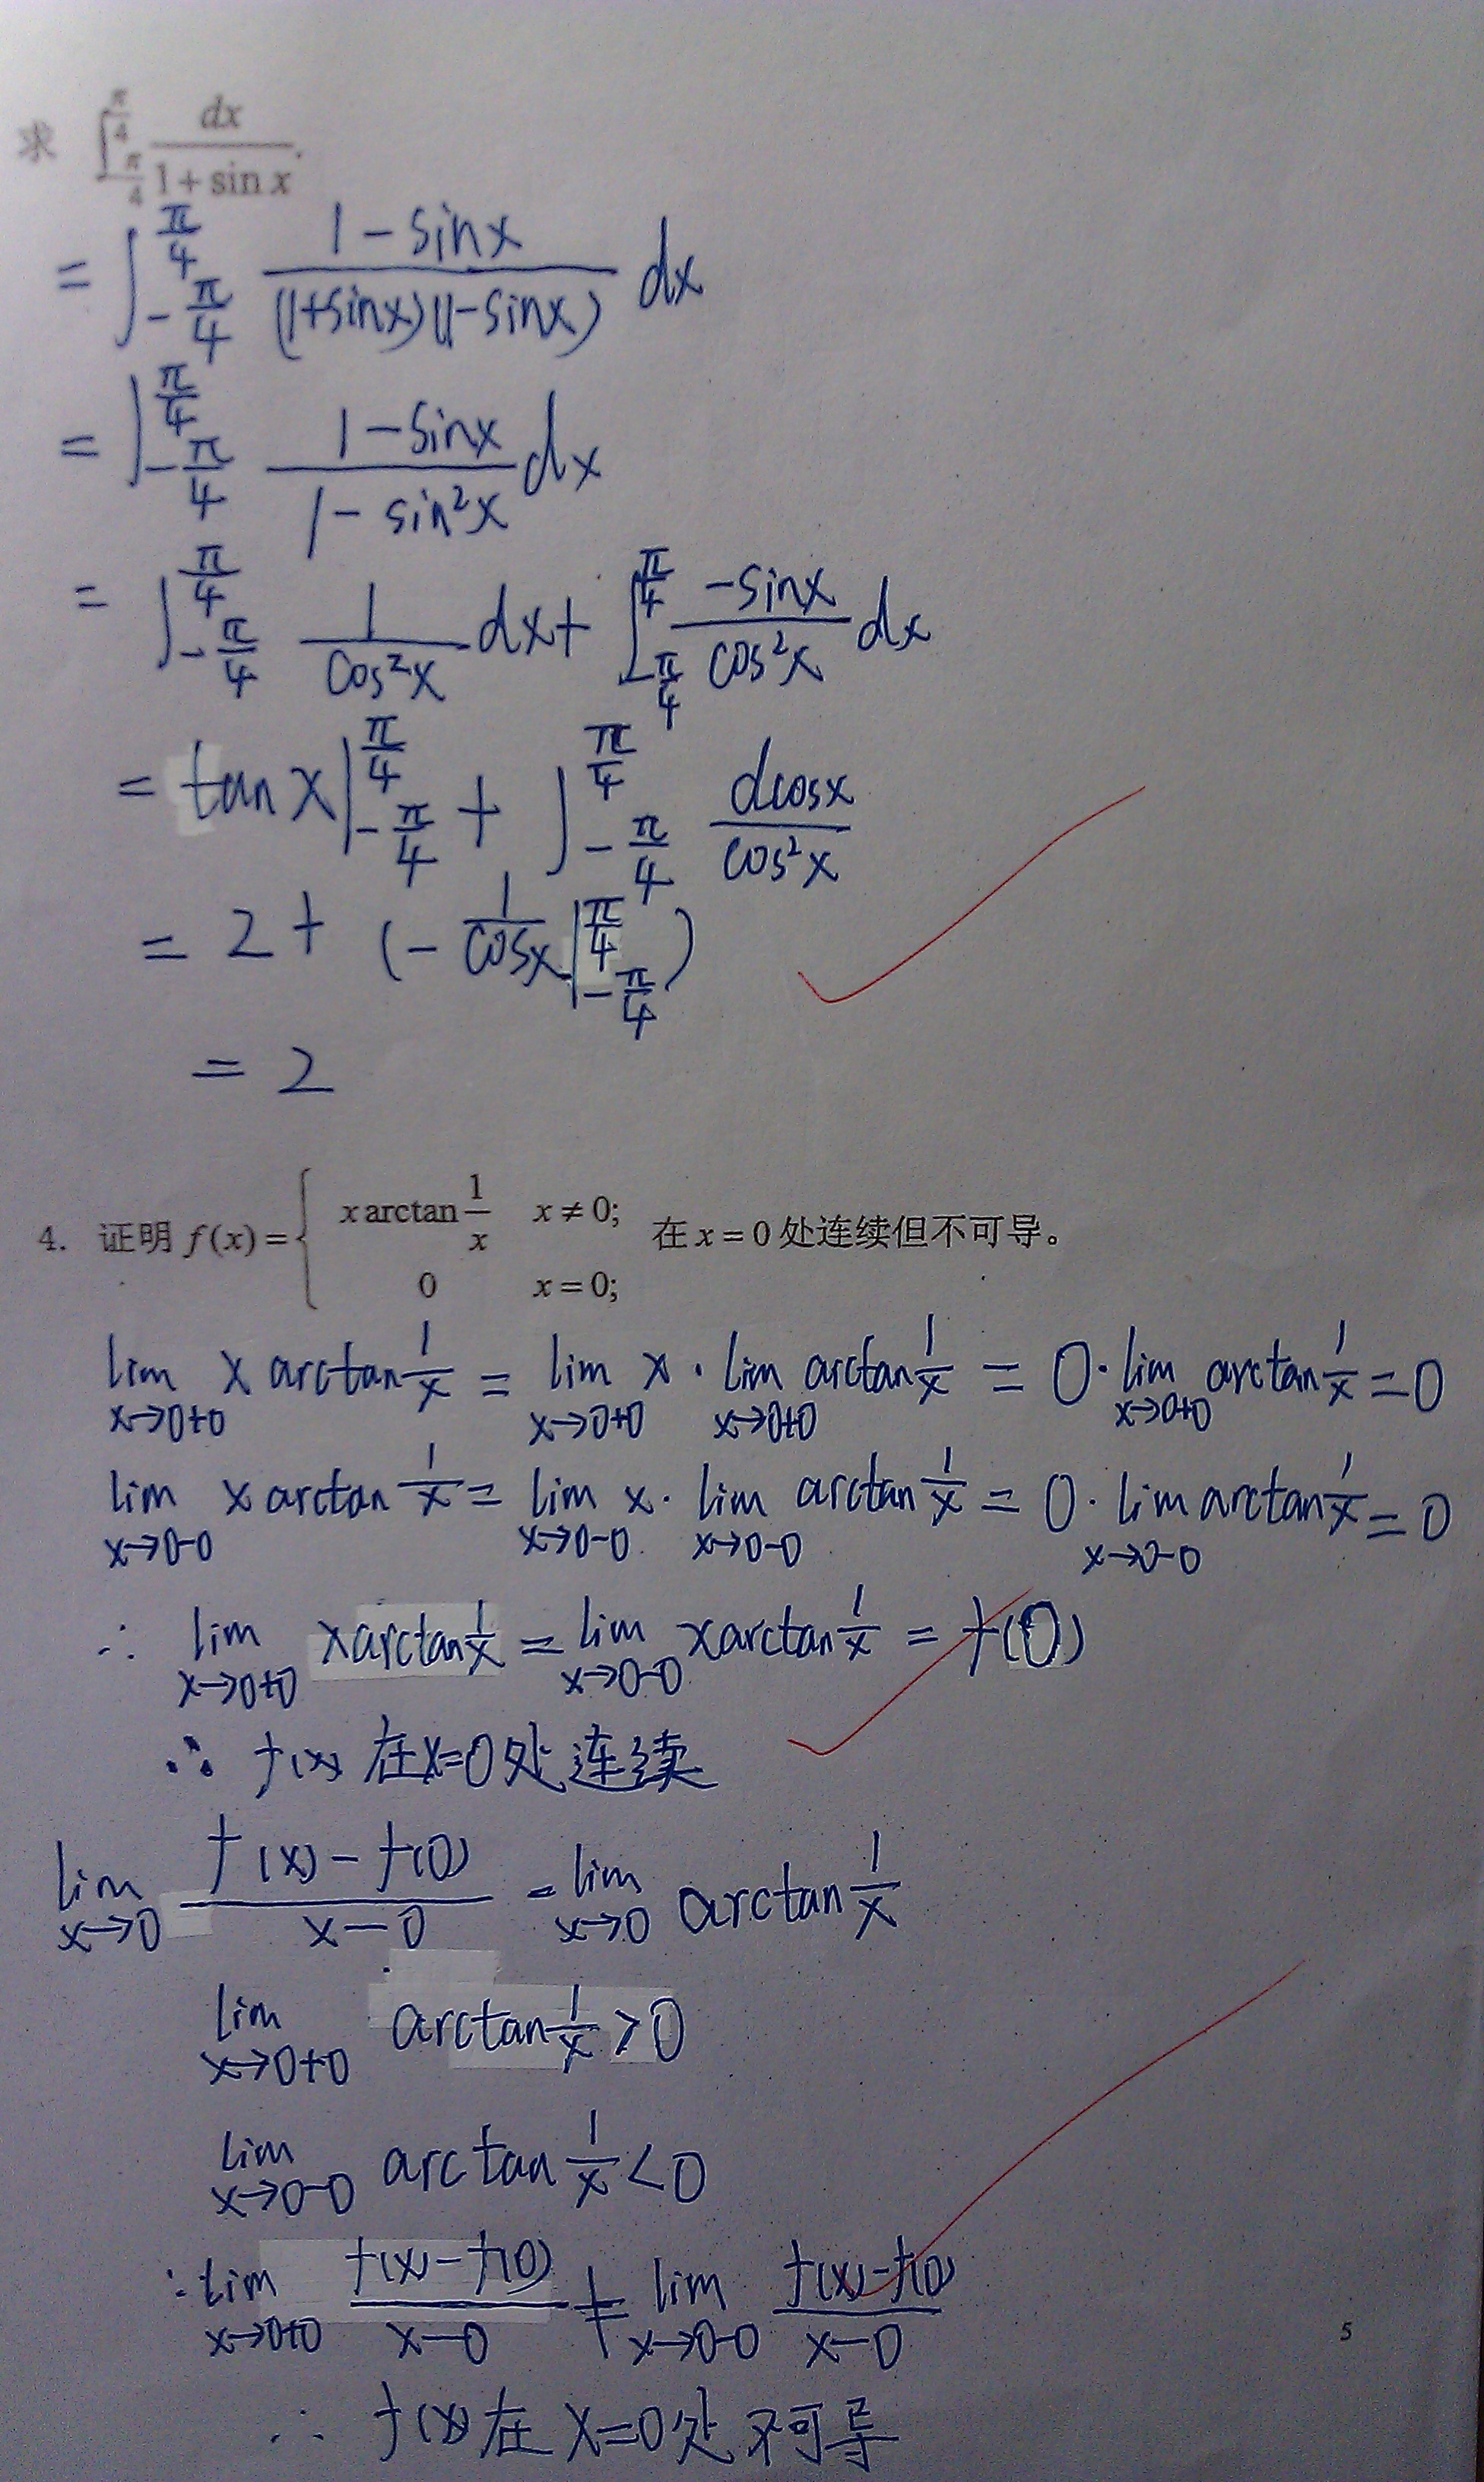 求 ∫_{-π/4}^{π/4} dx/(1+sin x).
= ∫_{-π/4}^{π/4} (1-sinx)/((1+sinx)(1-sinx)) dx
= ∫_{-π/4}^{π/4} (1-sinx)/(1-sin²x) dx
= ∫_{-π/4}^{π/4} 1/cos²x dx + ∫_{-π/4}^{π/4} -sinx/cos²x dx
= tan x|_{-π/4}^{π/4} + ∫_{-π/4}^{π/4} dcosx/cos²x
= 2 + (-1/cosx|_{-π/4}^{π/4})
= 2
4. 证明 f(x) = { x arctan 1/x  x ≠ 0; 0  x = 0; 在 x = 0 处连续但不可导。
lim_{x→0+0} x arctan 1/x = lim_{x→0+0} x · lim_{x→0+0} arctan 1/x = 0 · lim_{x→0+0} arctan 1/x = 0
lim_{x→0-0} x arctan 1/x = lim_{x→0-0} x · lim_{x→0-0} arctan 1/x = 0 · lim_{x→0-0} arctan 1/x = 0
∴ lim_{x→0+0} x arctan 1/x = lim_{x→0-0} x arctan 1/x = f(0)
∴ f(x) 在 x=0 处连续
lim_{x→0} (f(x)-f(0))/(x-0) = lim_{x→0} arctan 1/x
lim_{x→0+0} arctan 1/x > 0
lim_{x→0-0} arctan 1/x < 0
∵ lim_{x→0+0} (f(x)-f(0))/(x-0) ≠ lim_{x→0-0} (f(x)-f(0))/(x-0)
∴ f(x) 在 x=0 处不可导
5